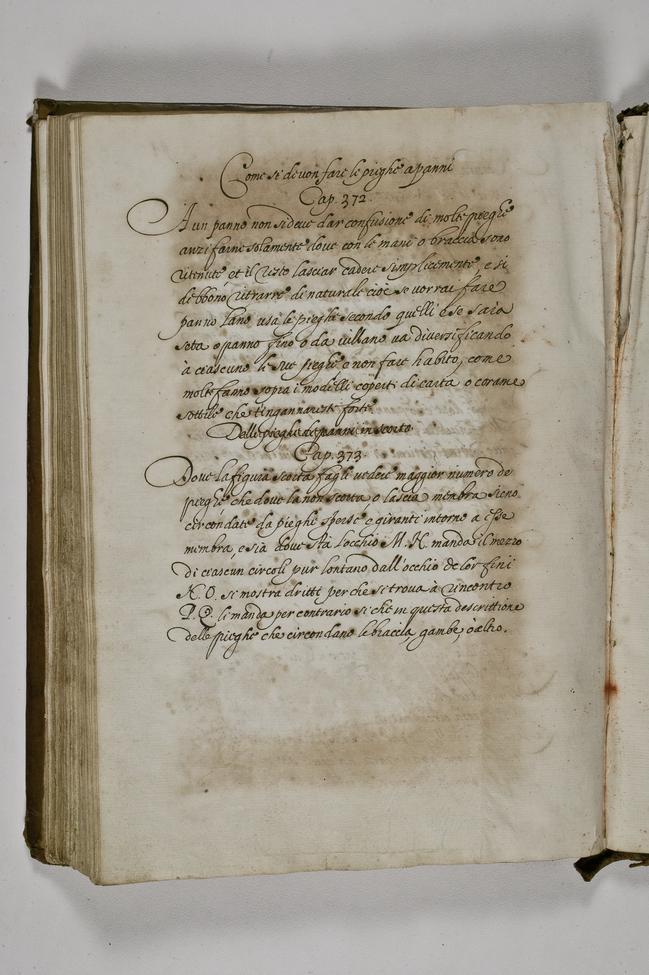 Come si devon fare le pieghe a panni
Cap. 372.
A un panno non si deve dar confusione di molte pieghe
anzi farne solamente dove con le mani o braccia sono
ritenute et il resto lasciar cadere simplicemente, e si
debbono ritrarre di naturale cioè se vorrai fare
panno lano, usa le pieghe secondo quelli e se sara
seta o panno fino o da villano va diversificando
à ciascuno le sue pieghe e non fare habito, come
molti fanno sopra i modelli coperti di carta o corame
sottile che t'ingannaresti forte.
Delle pieghe de panni in scorto.
Cap. 373.
Dove la figura scorta fagli vedere maggior numero de
pieghe che dove la non scorta, o la sua membra sieno
circondate da pieghe spesse e giranti intorno a esse
membra, e sia dove stà l'occhio M. N. manda il mezzo
di ciascun circoli più lontano dall'occhio de lor fini
N. O. si mostra dritti perche si trova à rincontro
P. Q. li manda per contrario si che in questa descrittione
delle pieghe che circondano le braccia gambe, ò altro.